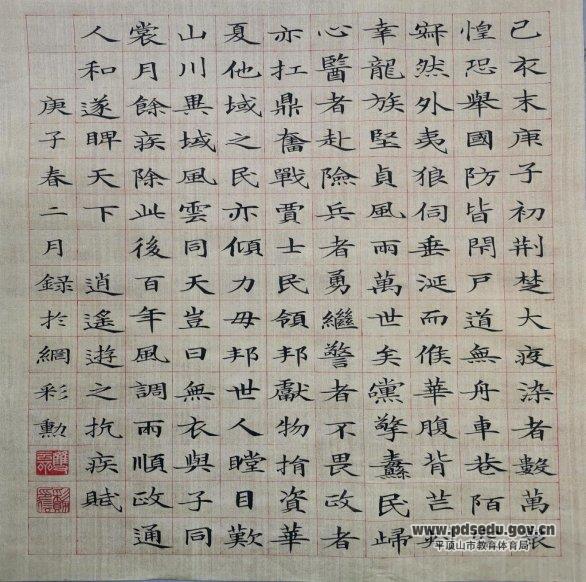 己亥末庚子初荊楚大疫染者數萬
惶恐舉國防皆閉戶道無舟車巷陌
寂然外夷狼伺垂涎而候華腹背芒
幸龍族堅貞風雨萬世矣黨擎纛民歸
心醫者赴險兵者勇繼警者不畏政者
亦扛鼎奮戰賈士民領邦獻物捐資華
夏他域之民亦傾力毋邦世人瞠目歎
山川異域風雲同天豈曰無衣與子同
裳月餘疾除此後百年風調雨順政通
人和遂睥天下 逍遙遊之抗疾賦
庚子春二月錄於網彩勳
www.pdsedu.gov.cn
平顶山市教育体育局